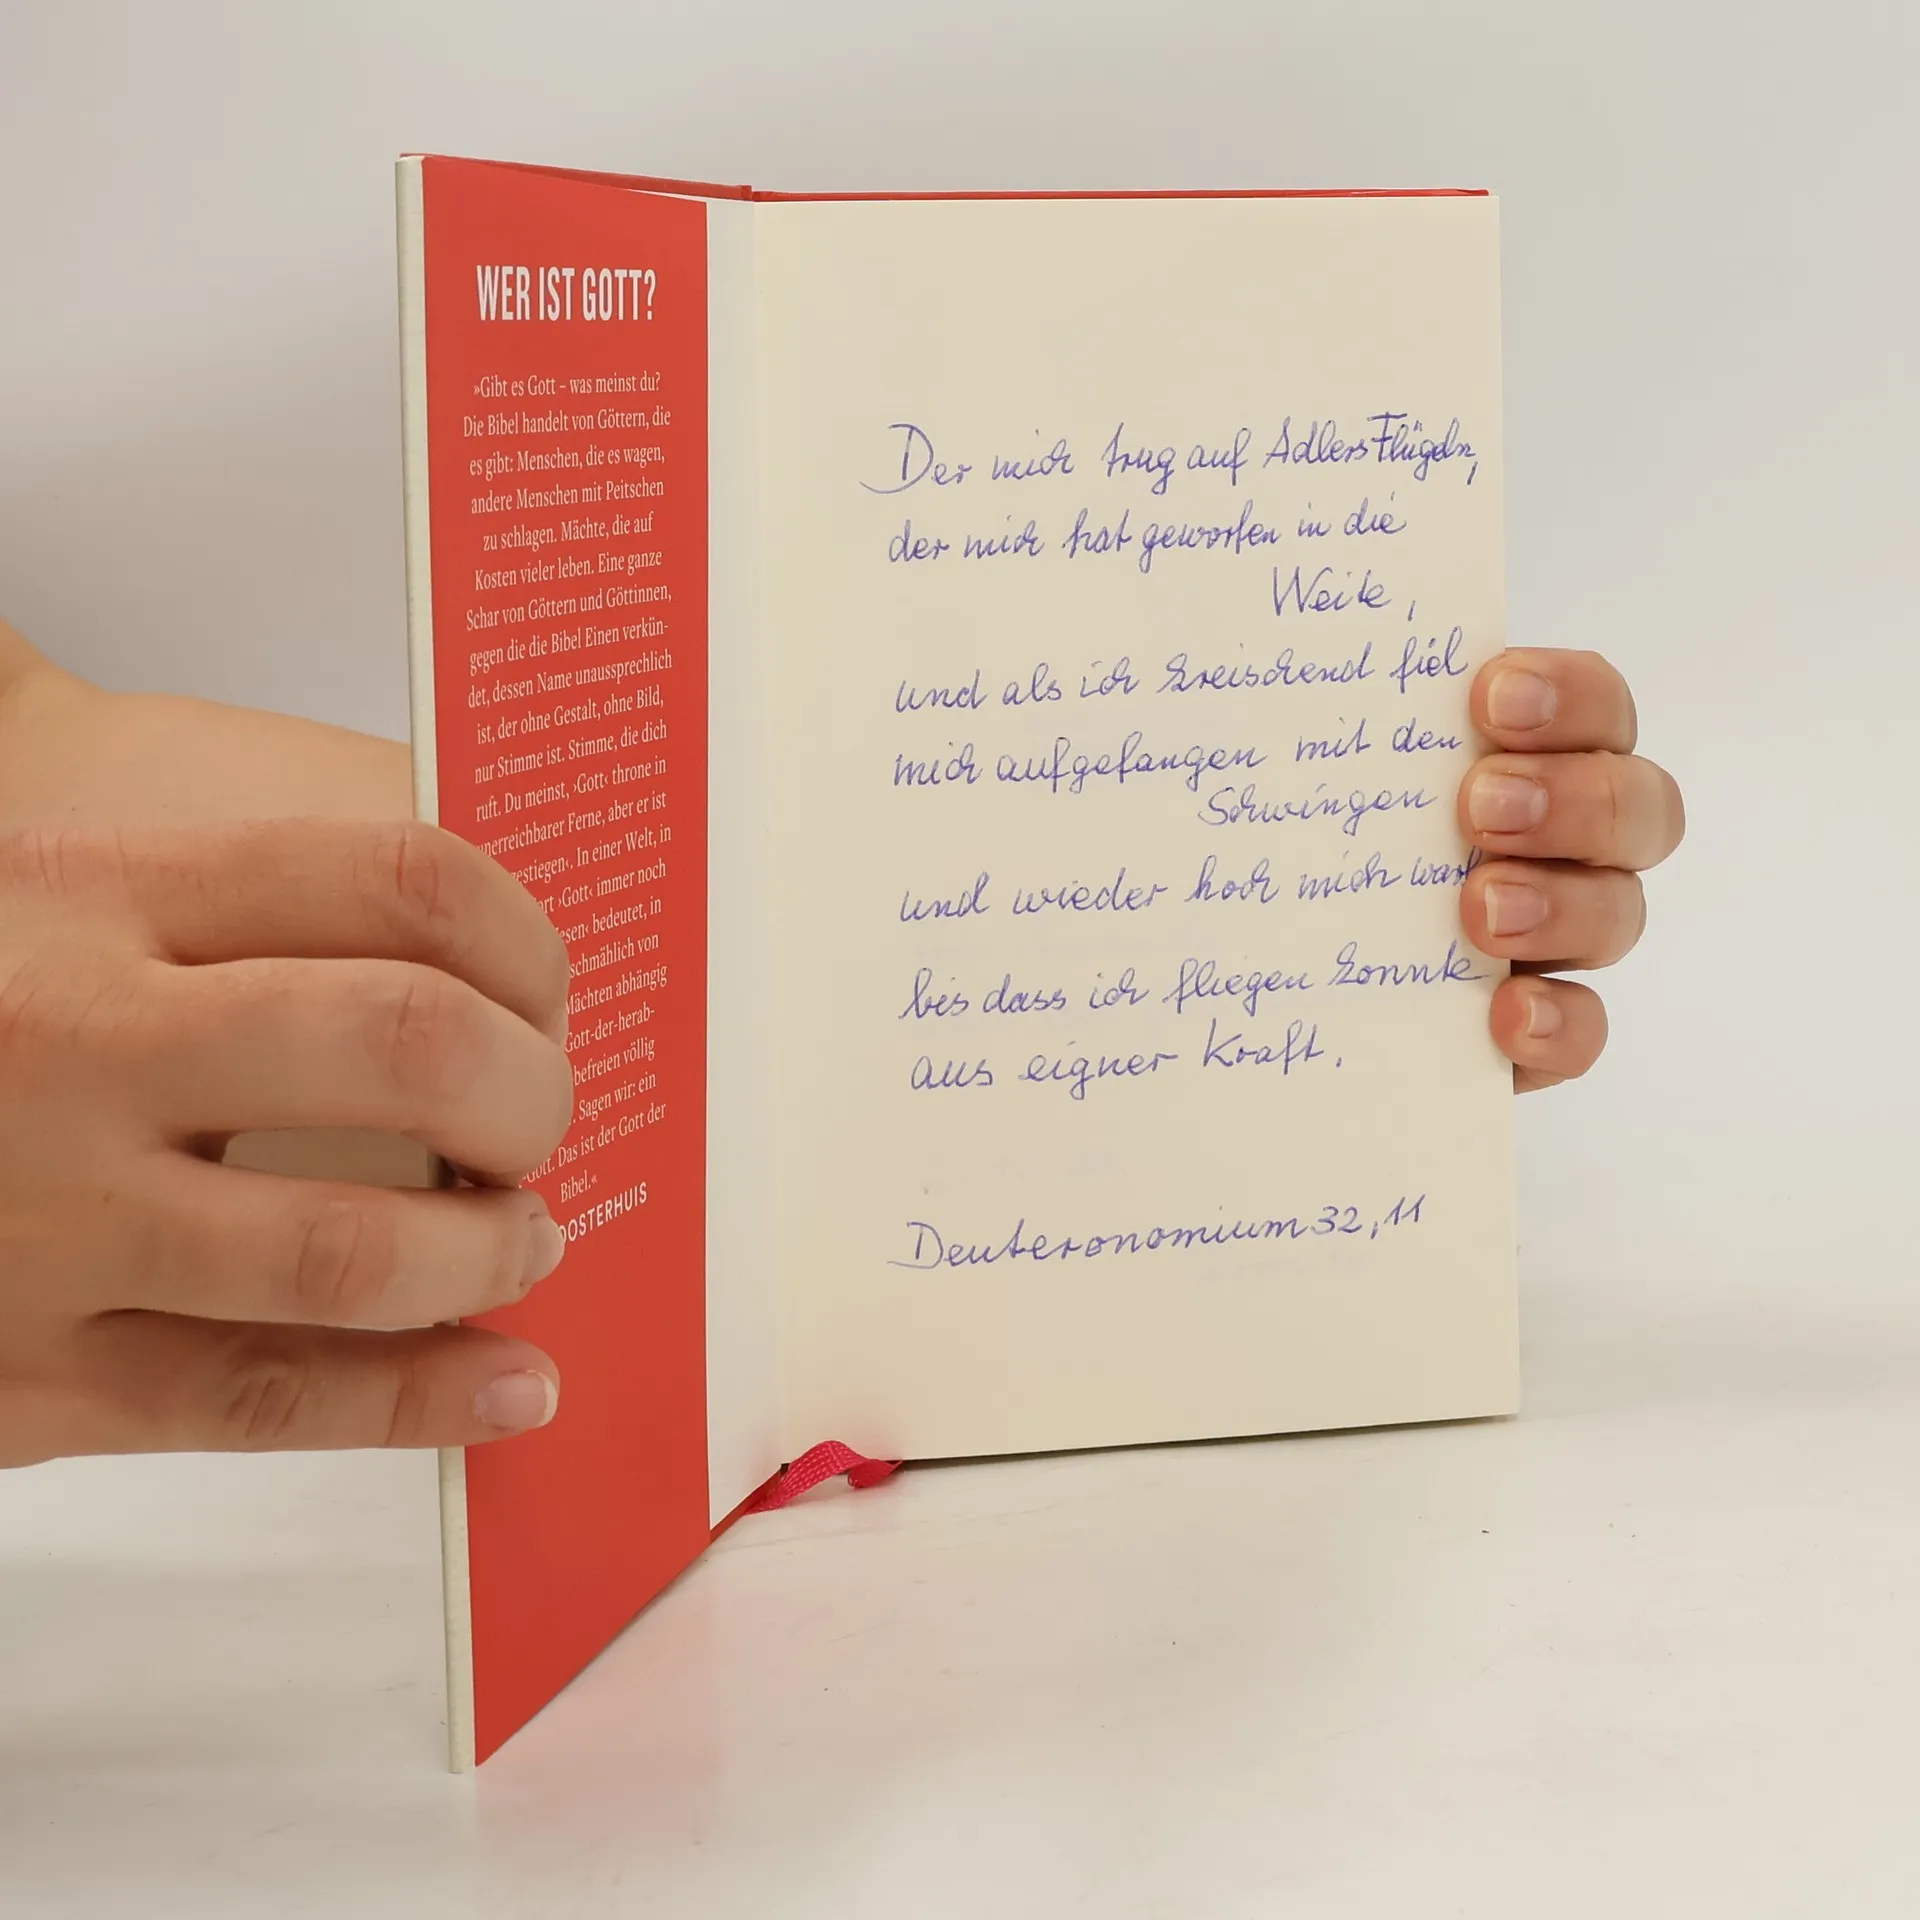 WER IST GOTT?
»Gibt es Gott – was meinst du?
Die Bibel handelt von Göttern, die
es gibt: Menschen, die es wagen,
andere Menschen mit Peitschen
zu schlagen. Mächte, die auf
Kosten vieler leben. Eine ganze
Schar von Göttern und Göttinnen,
gegen die die Bibel Einen verkün-
det, dessen Name unaussprechlich
ist, der ohne Gestalt, ohne Bild,
nur Stimme ist. Stimme, die dich
ruft. Du meinst, ›Gott‹ throne in
unerreichbarer Ferne, aber er ist
In einer Welt, in
›Gott‹ immer noch
bedeutet, in
schmählich von
Mächten abhängig
Gott-der-herab-
befreien völlig
Sagen wir: ein
Das ist der Gott der
Bibel.«
OOSTERHUIS
Der mich trug auf Adlers Flügeln,
der mich hat geworfen in die
Weite,
und als ich kreischend fiel
mich aufgefangen mit den
Schwingen
und wieder hoch mich warf
bis dass ich fliegen konnte
aus eigner Kraft.
Deuteronomium 32,11